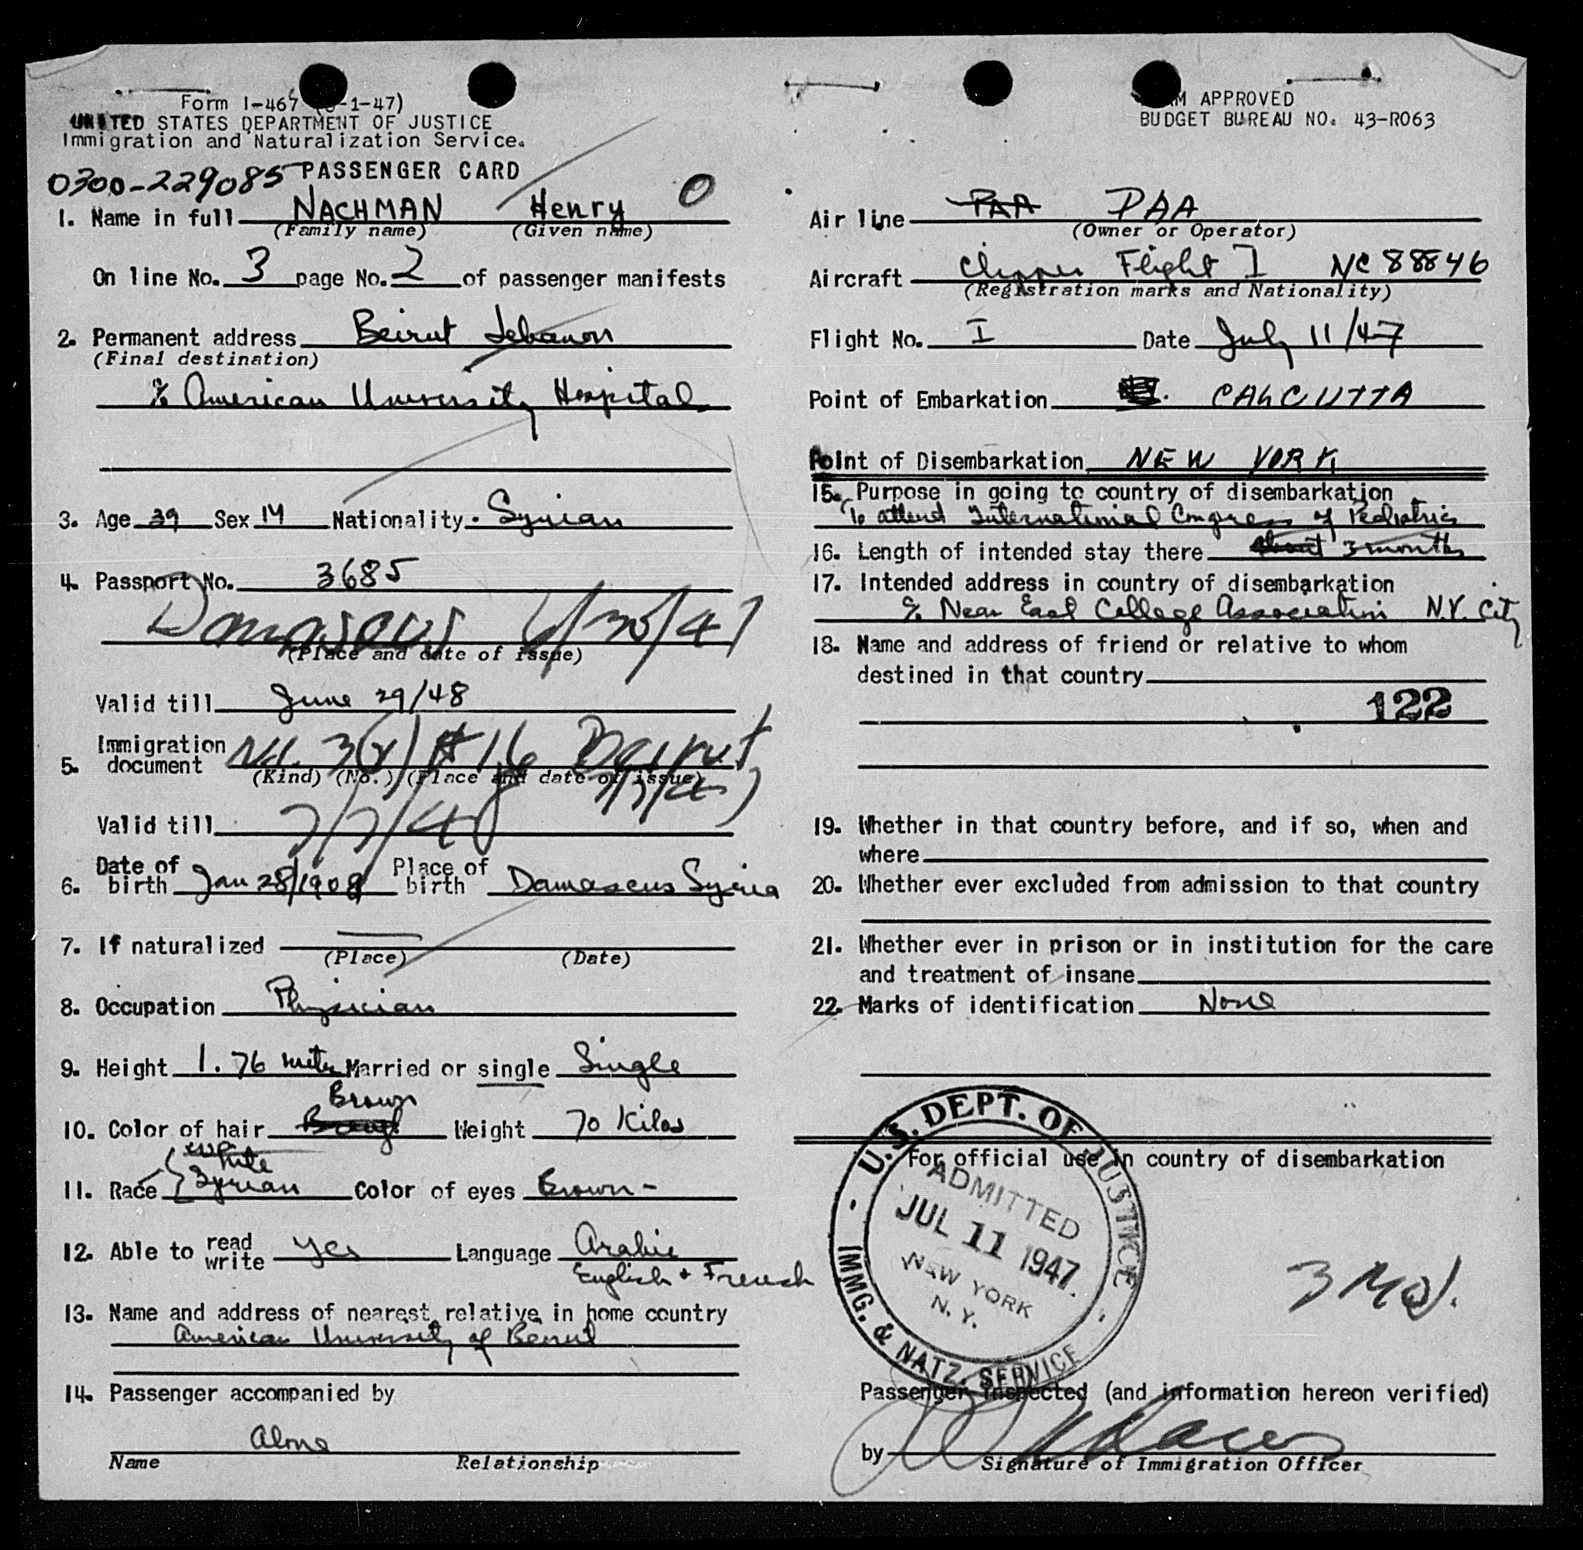 Form I-467 (-1-47)
UNITED STATES DEPARTMENT OF JUSTICE
Immigration and Naturalization Service.
0300-229085 PASSENGER CARD
1. Name in full NACHMAN Henry O
(Family name) (Given name)
On line No. 3 page No. 2 of passenger manifests
2. Permanent address Beirut Lebanon
(Final destination)
% American University Hospital
3. Age 39 Sex M Nationality. Syrian
4. Passport No. 3685
Damascus 6/30/47
(Place and date of issue)
Valid till June 29/48
5. Immigration document 3(2) #16 Beirut
(Kind) (No.) (Place and date of issue)
7/7/47
Valid till 7/7/48
6. Date of birth Jan 28/1908 Place of birth Damascus Syria
7. If naturalized
(Place) (Date)
8. Occupation Physician
9. Height 1.76 meter Married or single Single
Brown
10. Color of hair Weight 70 Kilos
White
11. Race Syrian Color of eyes Brown-
12. Able to read write yes Language Arabic
English + French
13. Name and address of nearest relative in home country
American University of Beirut
14. Passenger accompanied by
Alone
Name Relationship
FORM APPROVED
BUDGET BUREAU NO. 43-R063
Air line PAA PAA
(Owner or Operator)
Aircraft Clipper Flight I NC 88846
(Registration marks and Nationality)
Flight No. I Date July 11/47
Point of Embarkation CALCUTTA
Point of Disembarkation NEW YORK
15. Purpose in going to country of disembarkation
To attend International Congress of Pediatrics
16. Length of intended stay there about 3 months
17. Intended address in country of disembarkation
% Near East College Association N.Y. City
18. Name and address of friend or relative to whom
destined in that country
122
19. Whether in that country before, and if so, when and
where
20. Whether ever excluded from admission to that country
21. Whether ever in prison or in institution for the care
and treatment of insane
22. Marks of identification None
For official use in country of disembarkation
U.S. DEPT. OF JUSTICE - IMMG. & NATZ. SERVICE -
ADMITTED
JUL 11 1947
NEW YORK
N.Y.
3 Mos.
Passenger inspected (and information hereon verified)
by
Signature of Immigration Officer